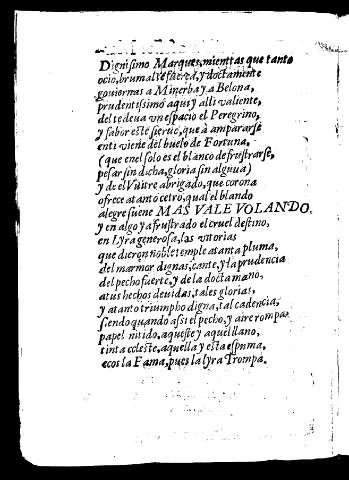 Dignisimo Marques, mientras que tanto
ocio, bruma l'esfuerça, y doctamente
gouiernas a Minerba y a Belona,
prudentissimo aqui y alli valiente,
del te deua vn espacio el Peregrino,
y sabor este sierue, que à ampararse
enti viene del buelo de Fortuna,
(que en el solo es el blanco de frustrarse,
pesar sin dicha, gloria sin alguna)
y de el Vuitre abrigado, que corona
ofrece a tanto cetro, qual el blando
alegre suene MAS VALE VOLANDO.
y en algo ya frustrado el cruel destino,
en Lyra generosa, las vitorias
que dieron noble temple a tanta pluma,
del marmor dignas, cante, y la prudencia
del pecho fuerte, y de la docta mano,
a tus hechos deuidas, tales glorias,
y a tanto triumpho digna, tal cadencia,
siendo quando assi el pecho, y aire rompa
papel nitido, aqueste y aquel llano,
tinta celeste, aquella y esta espuma,
ecos la Fama, pues la lyra Trompa.